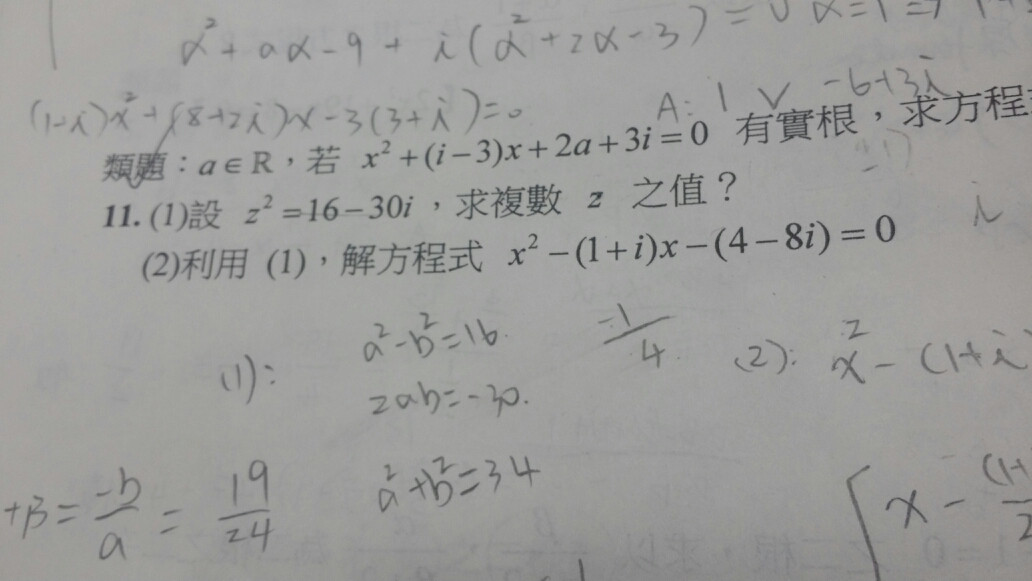 α²+aα-9+i(α²+2α-3)=0 α=1
(1+i)x²+(8+2i)x-3(3+i)=0
A: 1 ∨ -6+3i
類題：a∈R，若 x²+(i-3)x+2a+3i=0 有實根，求方程
11. (1)設 z²=16-30i ，求複數 z 之值？
i
(2)利用 (1)，解方程式 x²-(1+i)x-(4-8i)=0
(1): a²-b²=16.
2ab=-30.
-1/4
(2): x²-(1+i)
a²+b²=34
+β=-b/a=19/24
[x-(1+
2